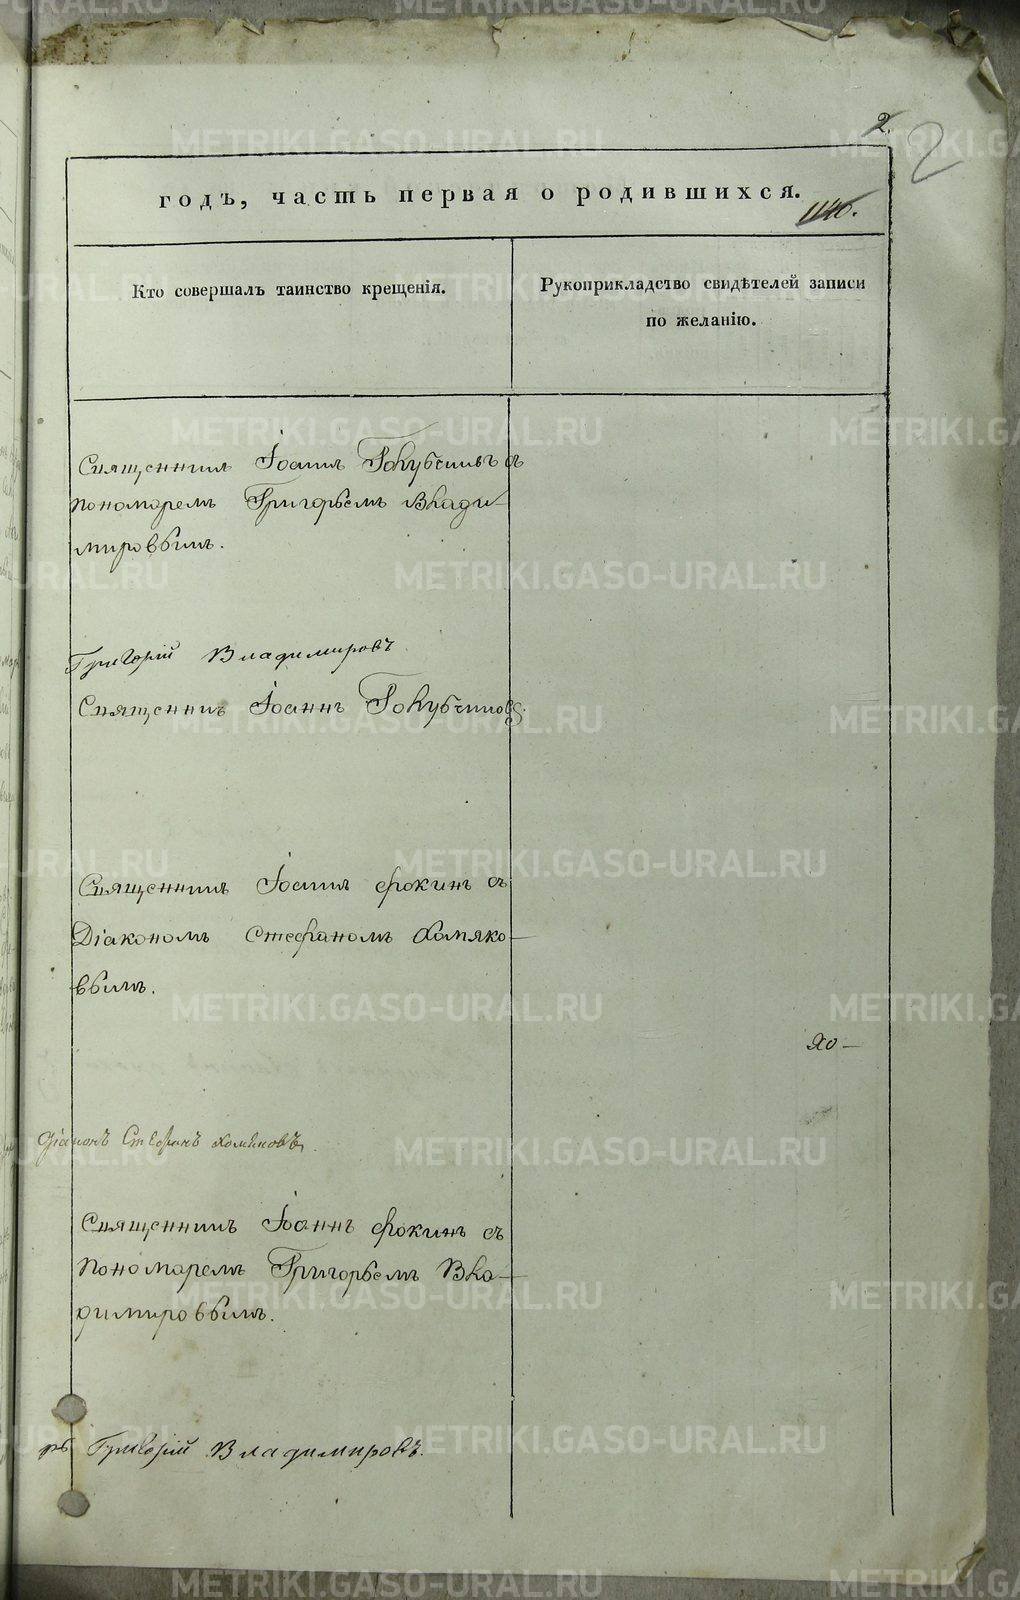 2.
2
годъ, часть первая о родившихся.
1146.
Кто совершалъ таинство крещенія.
Рукоприкладство свидѣтелей записи
по желанію.
Священникъ Іоаннъ Голубчиковъ съ
пономаремъ Григорьемъ Влади-
мировымъ.
Григорій Владимировъ
Священникъ Іоаннъ Голубчиковъ.
Священникъ Іоаннъ Фокинъ съ
Діакономъ Стефаномъ Хомяко-
вымъ.
Хо-
діаконъ Стефанъ Хомяковъ.
Священникъ Іоаннъ Фокинъ съ
пономаремъ Григорьемъ Вла-
димировымъ.
рь Григорій Владимировъ.
METRIKI.GASO-URAL.RU